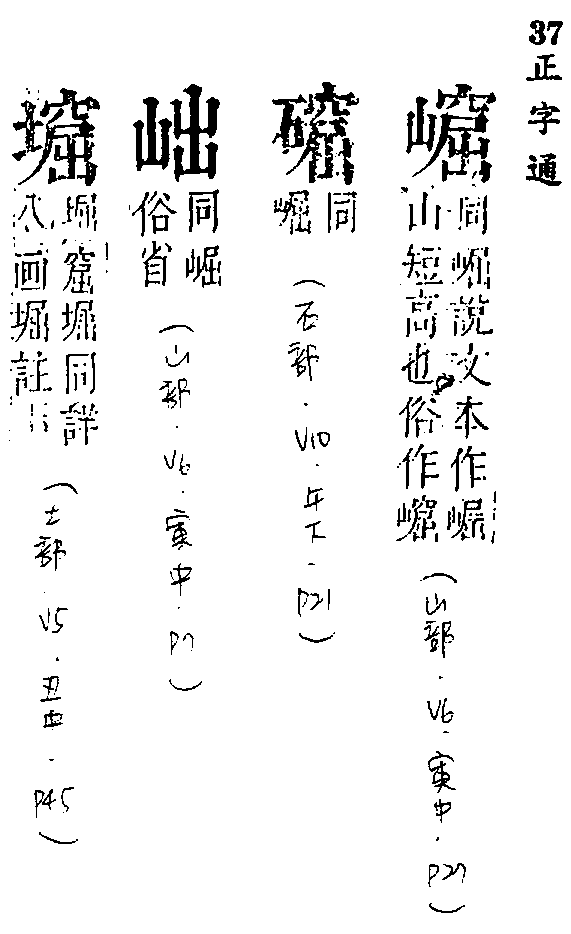 37
正字通
同崛說文本作崛
山短高也俗作
(山部．V6．寅中．P27)
同
崛
(石部．V10．午下．P21)
同崛
俗省
(山部．V6．寅中．P7)
堀窟堀同詳
八画堀註
(土部．V5．丑中．P45)